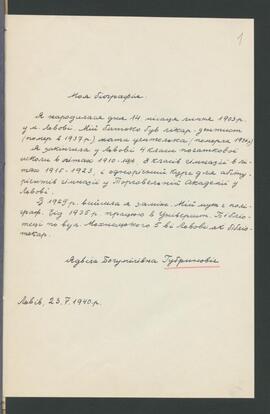 1
Моя біографія.
Я народилася дня 14 місяця липня 1903 р.
у м. Львові. Мій батько був лікар. дентист
(помер в 1937 р.) мати учителька (померла
Я закінчила у Львові 4 класи початкової
школи в літах 1910-1914 8 класів гімназії в лі-
тах 1915-1923, і однорічний курс для абіту-
рієнтів гімназії у Торговельній Академії у
Львові.
В 1929 р. вийшла я заміж. Мій муж є полі-
граф. Від 1935 р. працюю в Університ. Бібліо-
теці по вул. Мохнацького 5 ві Львові як бібліо-
текар.
Ядвіга Богумілівна Губринович
Львів, 23.V.1940 р.